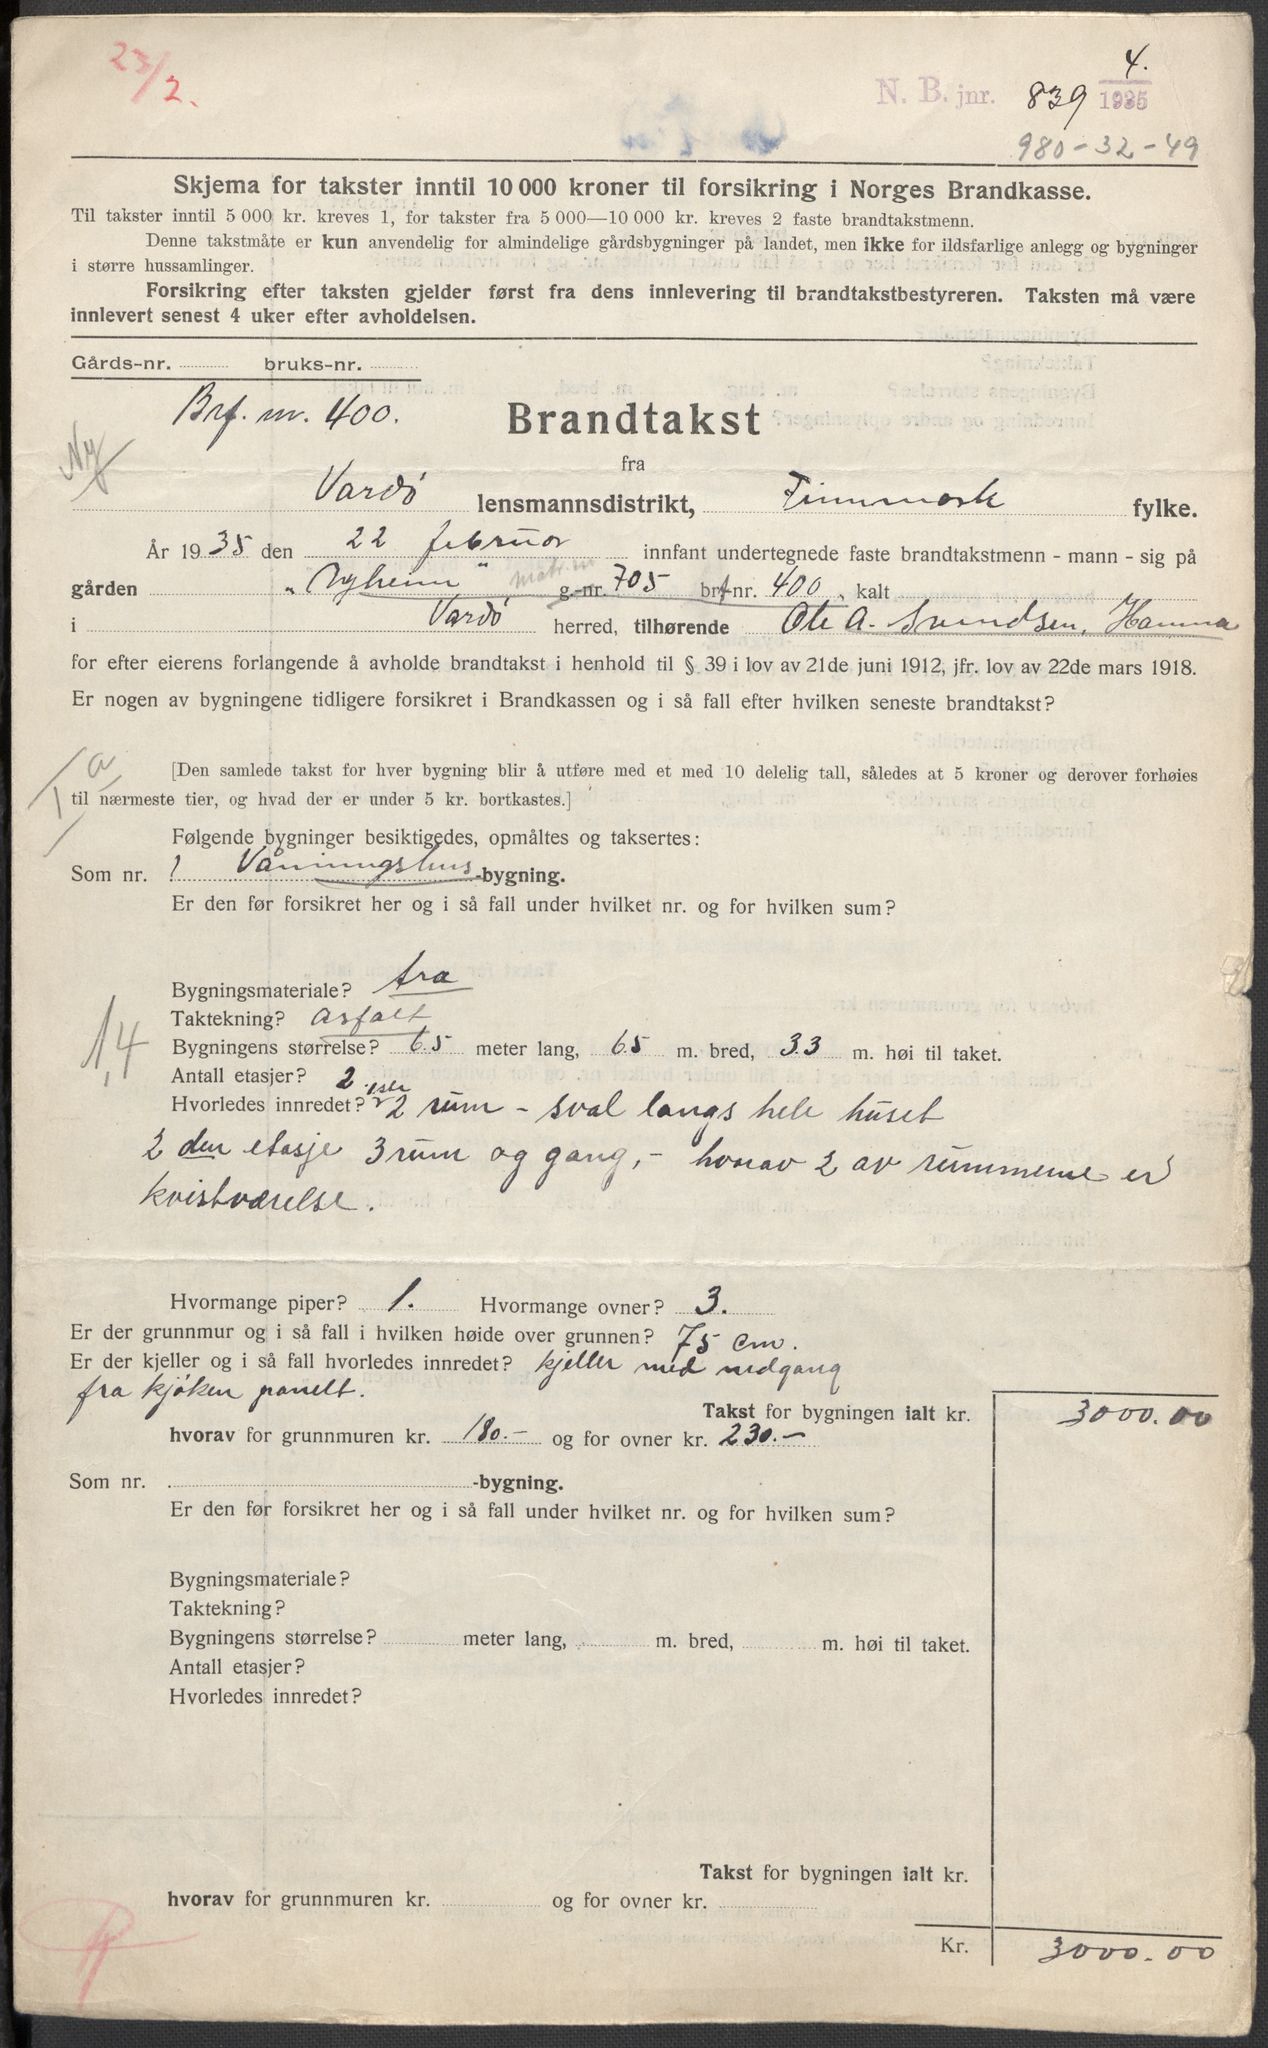 23/2.
4.
N. B. jnr. 839 1935
980-32-49
Skjema for takster inntil 10 000 kroner til forsikring i Norges Brandkasse.
Til takster inntil 5 000 kr. kreves 1, for takster fra 5 000—10 000 kr. kreves 2 faste brandtakstmenn.
Denne takstmåte er kun anvendelig for almindelige gårdsbygninger på landet, men ikke for ildsfarlige anlegg og bygninger
i større hussamlinger.
Forsikring efter taksten gjelder først fra dens innlevering til brandtakstbestyreren. Taksten må være
innlevert senest 4 uker efter avholdelsen.
Gårds-nr. bruks-nr.
Brf. nr. 400.
Brandtakst
Ny
fra
Vardö lensmannsdistrikt, Finnmark fylke.
År 1935 den 22 februar innfant undertegnede faste brandtakstmenn - mann - sig på
gården "Nyheim" matr. nr g.-nr. 705 brf nr. 400, kalt
i Vardö herred, tilhørende Ole A. Svendsen, Hamna
for efter eierens forlangende å avholde brandtakst i henhold til § 39 i lov av 21de juni 1912, jfr. lov av 22de mars 1918.
Er nogen av bygningene tidligere forsikret i Brandkassen og i så fall efter hvilken seneste brandtakst?
I a
[Den samlede takst for hver bygning blir å utføre med et med 10 delelig tall, således at 5 kroner og derover forhøies
til nærmeste tier, og hvad der er under 5 kr. bortkastes.]
Følgende bygninger besiktigedes, opmåltes og taksertes:
Som nr. 1 Våningshus-bygning.
Er den før forsikret her og i så fall under hvilket nr. og for hvilken sum?
Bygningsmateriale? tra
Taktekning? asfalt
1,4
Bygningens størrelse? 6.5 meter lang, 6.5 m. bred, 3.3 m. høi til taket.
Antall etasjer? 2
Hvorledes innredet? 1ste 2 rum - sval langs hele huset
2 den etasje 3 rum og gang, - hvorav 2 av rummene er
kvistværelse.
Hvormange piper? 1. Hvormange ovner? 3.
Er der grunnmur og i så fall i hvilken høide over grunnen? 75 cm.
Er der kjeller og i så fall hvorledes innredet? kjeller med nedgang
fra kjøken panelt.
Takst for bygningen ialt kr. 3000.00
hvorav for grunnmuren kr. 180.- og for ovner kr. 230.-
Som nr. -bygning.
Er den før forsikret her og i så fall under hvilket nr. og for hvilken sum?
Bygningsmateriale?
Taktekning?
Bygningens størrelse? meter lang, m. bred, m. høi til taket.
Antall etasjer?
Hvorledes innredet?
Takst for bygningen ialt kr.
hvorav for grunnmuren kr. og for ovner kr.
Kr. 3000.00